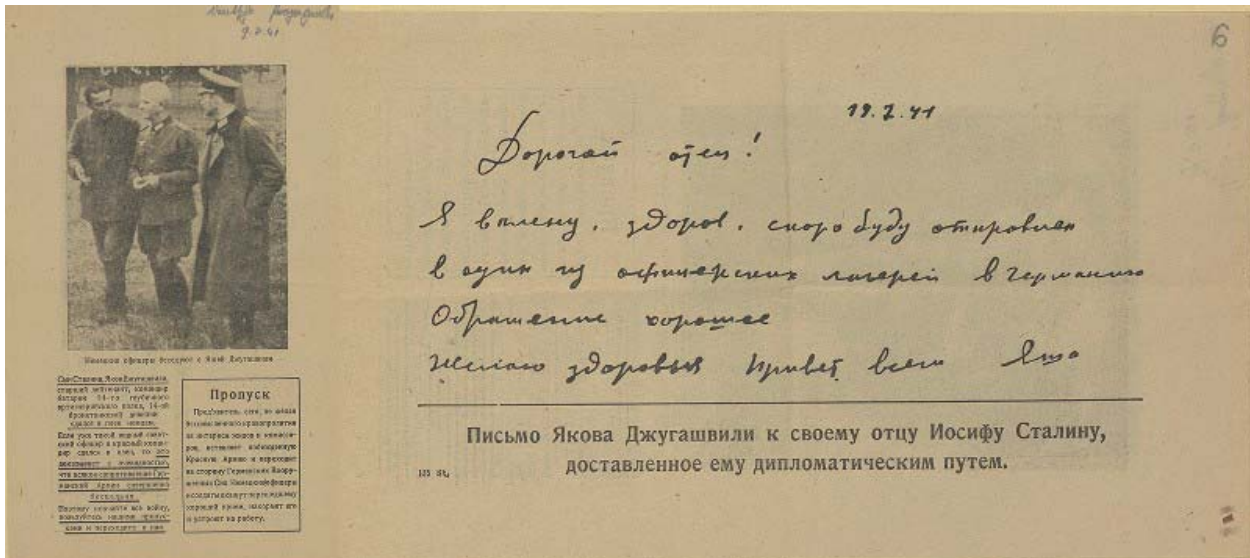 Немецкие офицеры беседуют с Яшей Джугашвили
Сын Сталина, Яков Джугашвили,
старший лейтенант, командир
батареи 14-го гаубичного
артиллерийского полка, 14-ой
бронетанковой дивизии
сдался в плен немцам.
Если уже такой видный совет-
ский офицер и красный коман-
дир сдался в плен, то это
доказывает с очевидностью,
что всякое сопротивление Гер-
манской Армии совершенно
бесцельно.
Поэтому кончайте все войну,
и переходите к нам.
Пропуск
Предъявитель сего, не желая
бессмысленного кровопролития
за интересы жидов и комисса-
ров, оставляет побежденную
Красную Армию и переходит
на сторону Германских Воору-
женных Сил. Немецкие офицеры
и солдаты окажут перешедшему
хороший прием, накормят его
и устроят на работу.
6
19.7.41
Дорогой отец!
Я в плену, здоров, скоро буду отправлен
в один из офицерских лагерей в Германию
Обращение хорошее
Желаю здоровья Привет всем Яша
Письмо Якова Джугашвили к своему отцу Иосифу Сталину,
доставленное ему дипломатическим путем.